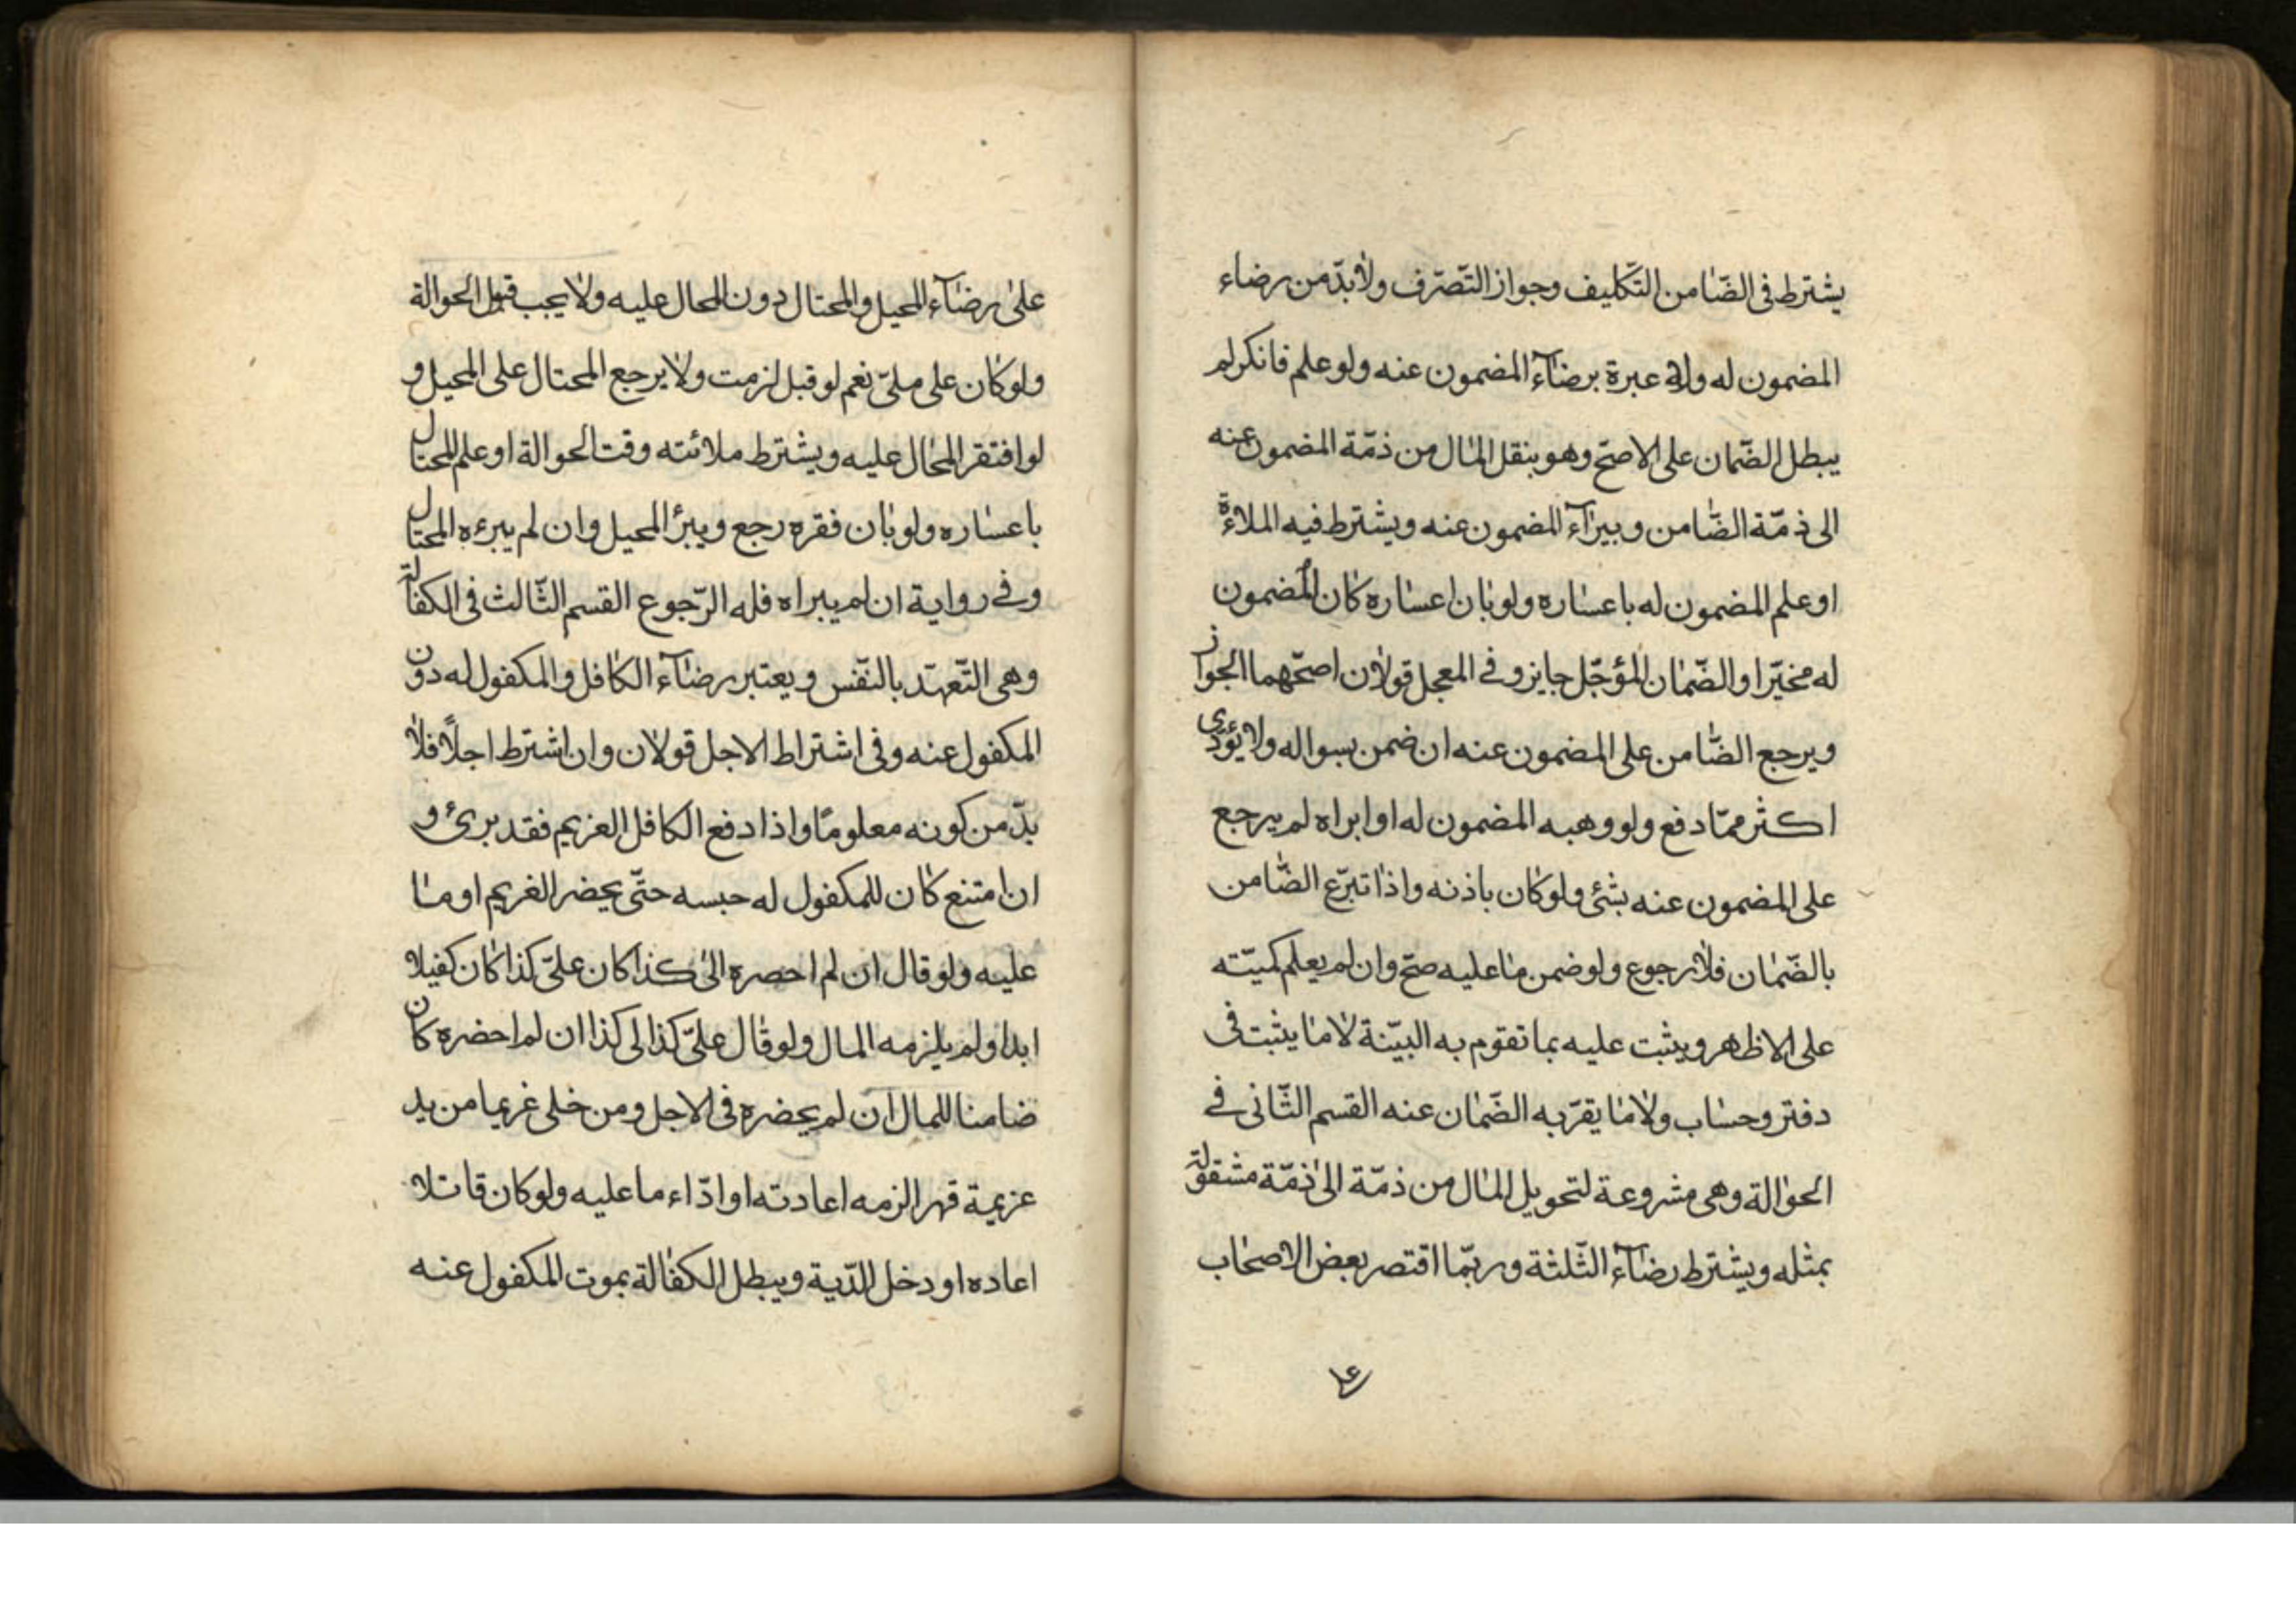 يشترط فى الضّامن التّكليف وجواز التّصرّف ولابدّ من رضاء
المضمون له ولا عبرة برضآء المضمون عنه ولو علم فانكر لم
يبطل الضّمان على الاصحّ وهو ينقل المال من ذمّة المضمون عنه
الى ذمّة الضّامن ويبرآء المضمون عنه ويشترط فيه الملاءة
او علم المضمون له باعساره ولو بان اعساره كان المضمون
له مخيّرا والضّمان المؤجّل جايز وفى المعجل قولان اصحّهما الجواز
ويرجع الضّامن على المضمون عنه ان ضمن بسواله ولا يؤدّى
اكثر ممّا دفع ولو وهبه المضمون له او ابراه لم يرجع
على المضمون عنه بشئ ولو كان باذنه واذا تبرّع الضّامن
بالضّمان فلا رجوع ولو ضمن ما عليه صحّ وان لم يعلم كميّته
على الاظهر ويثبت عليه بما تقوم به البيّنة لا ما يثبت فى
دفتر وحساب ولا ما يقرّ به الضّمان عنه القسم الثّانى فى
الحوالة وهى مشروعة لتحويل المال من ذمّة الى ذمّة مشقولة
بمثله ويشترط رضآء الثّلثة وربّما اقتصر بعض الاصحاب
على رضآء المحيل والمحتال دون المحال عليه ولا يجب قبول الحوالة
ولو كان على ملىّ نعم لو قبل لزمت ولا يرجع المحتال على المحيل و
لو افتقر المحال عليه ويشترط ملائته وقت الحوالة او علم المحتال
باعساره ولو بان فقره رجع ويبرأ المحيل وان لم يبرءه المحتال
وفى رواية ان لم يبراه فله الرّجوع القسم الثّالث فى الكفالة
وهى التّعهّد بالنّفس ويعتبر رضآء الكافل والمكفول له دون
المكفول عنه وفى اشتراط الاجل قولان وان اشترط اجلاً فلا
بدّ من كونه معلومًا واذا دفع الكافل العزيم فقد برئ و
ان امتنع كان للمكفول له حبسه حتّى يحضر الغريم او ما
عليه ولو قال ان لم احصره الى كذا كان علىّ كذا كان كفيلا
ابدا ولم يلزمه المال ولو قال علىّ كذا الى كذا ان لم احضره كان
ضامنا للمال ان لم يحضره فى الاجل ومن خلى غريما من يد
عزيمة قهرا لزمه اعادته او ادّاء ما عليه ولو كان قاتلا
اعاده او دخل الدّية ويبطل الكفالة بموت المكفول عنه